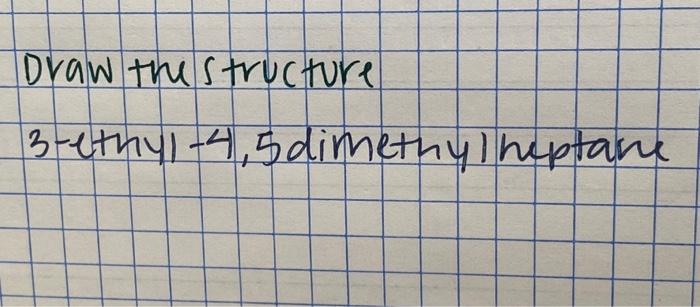 Draw the structure
3-ethyl-4,5dimethylheptane